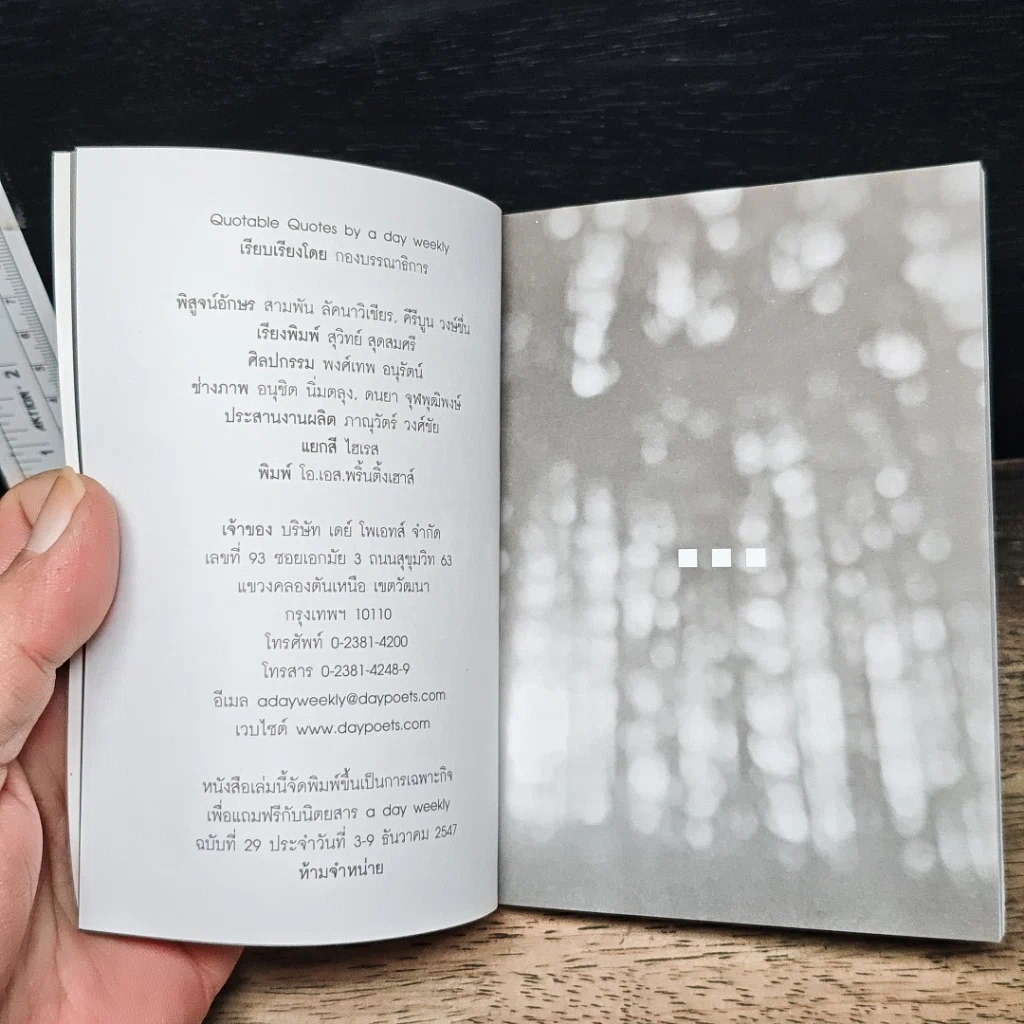 Quotable Quotes by a day weekly
เรียบเรียงโดย กองบรรณาธิการ
พิสูจน์อักษร สามพัน ลัคนาวิเชียร, คีรีบูน วงษ์ชื่น
เรียงพิมพ์ สุวิทย์ สุดสมศรี
ศิลปกรรม พงศ์เทพ อนุรัตน์
ช่างภาพ อนุชิต นิ่มตลุง, ดนยา จุฬพุฒิพงษ์
ประสานงานผลิต ภาณุวัตร์ วงศ์ชัย
แยกสี ไฮเรส
พิมพ์ โอ.เอส.พริ้นติ้งเฮาส์
เจ้าของ บริษัท เดย์ โพเอทส์ จำกัด
เลขที่ 93 ซอยเอกมัย 3 ถนนสุขุมวิท 63
แขวงคลองตันเหนือ เขตวัฒนา
กรุงเทพฯ 10110
โทรศัพท์ 0-2381-4200
โทรสาร 0-2381-4248-9
อีเมล adayweekly@daypoets.com
เวบไซต์ www.daypoets.com
หนังสือเล่มนี้จัดพิมพ์ขึ้นเป็นการเฉพาะกิจ
เพื่อแถมฟรีกับนิตยสาร a day weekly
ฉบับที่ 29 ประจำวันที่ 3-9 ธันวาคม 2547
ห้ามจำหน่าย